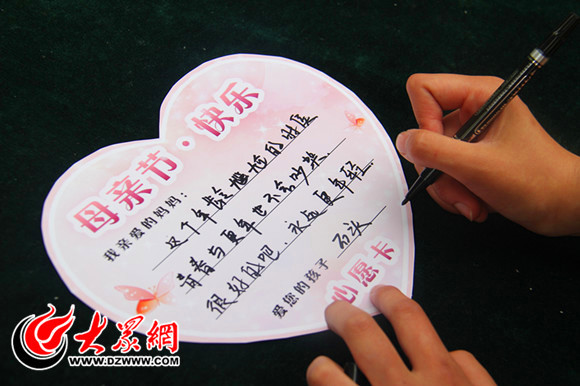 母亲节·快乐
我亲爱的妈妈：
这个年龄尴尬的时段
青春与更年也不会吵架.
很好的吧、永远更年轻
爱您的孩子 石头
心愿卡
大眾網
WWW.DZWWW.COM